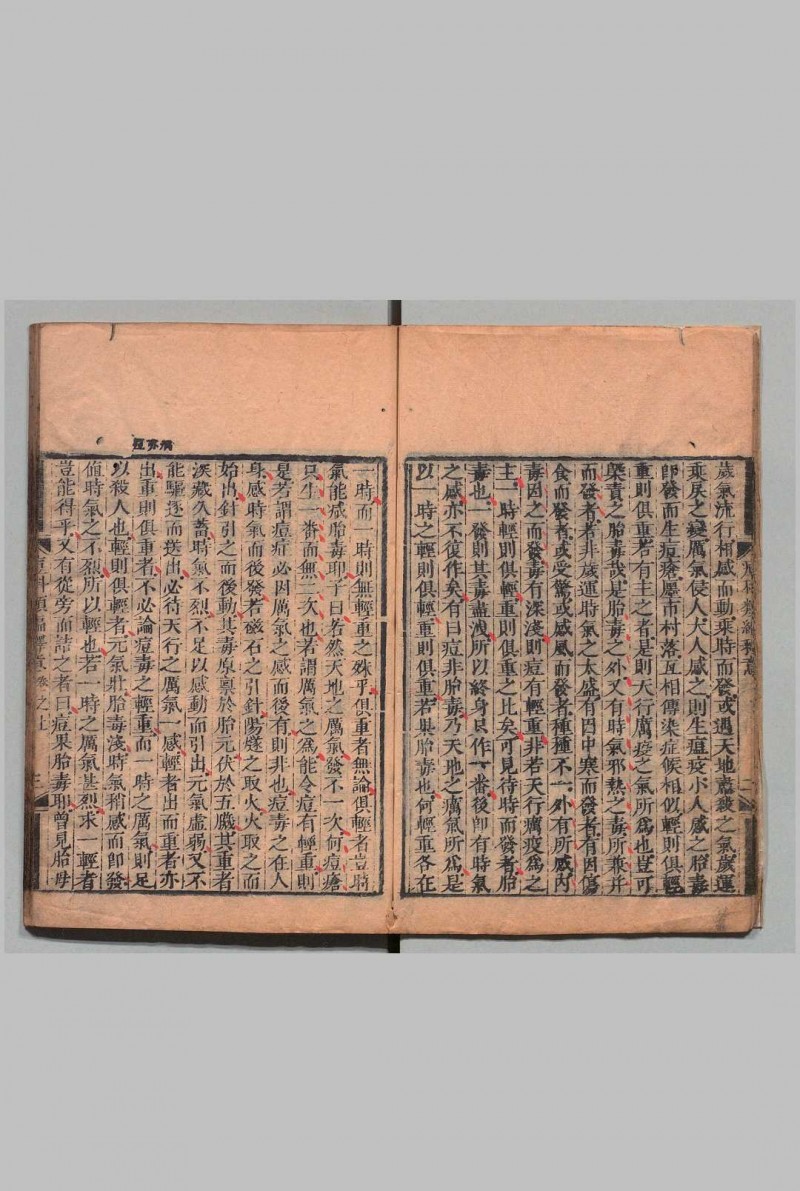 歲氣流行相感而動乘時而發或遇天地肅殺之氣歲運
乘戾之變厲氣侵人大人感之則生瘟疫小人感之胎毒
卽發而生痘瘡屢市村落互相傳染症候相似輕則俱輕
重則俱重若有主之者是則天行厲疫之氣所爲也豈可
槩責之胎毒哉是胎毒之外又有時氣邪熱之毒所兼并
而發者若非歲運時氣之太盛有因中寒而發者有因傷
食而發者或受驚或感風而發者種種不一外有所感內
毒因之而發毒有深淺則痘有輕重非若天行癘疫爲之
主一時輕則俱輕重則俱重之比矣可見待時而發者胎
毒也一發則其毒盡洩所以終身只作一番後卽有時氣
之感亦不復作矣有曰痘非胎毒乃天地之癘氣所爲是
以一時之輕則俱輕重則俱重若果胎毒也何輕重各在
二
一時而一時則無輕重之殊乎俱重者無論俱輕者豈時
氣能咸胎毒耶予曰若然天地之厲氣發不一次何痘瘡
只生一番而無二次也若謂厲氣之爲能令痘有輕重則
是若謂痘症必因厲氣之感而後有則非也痘毒之在人
身感時氣而後發若磁石之引針陽燧之取火火取之而
始出針引之而後動其毒原禀於胎元伏於五臟其重者
深藏久蓄時氣不烈不足以感動而引出元氣虛弱又不
能驅逐而送出必待天行之厲氣一感輕者出而重者亦
出重則俱重者不必論痘毒之輕重而一時之厲氣則足
以殺人也輕則俱輕者元氣壯胎毒淺時氣稍感而卽發
値時氣之不烈所以輕也若一時之厲氣甚烈求一輕者
豈能得乎又有從旁而詰之者曰痘果胎毒耶曾見胎母
卷之上
三